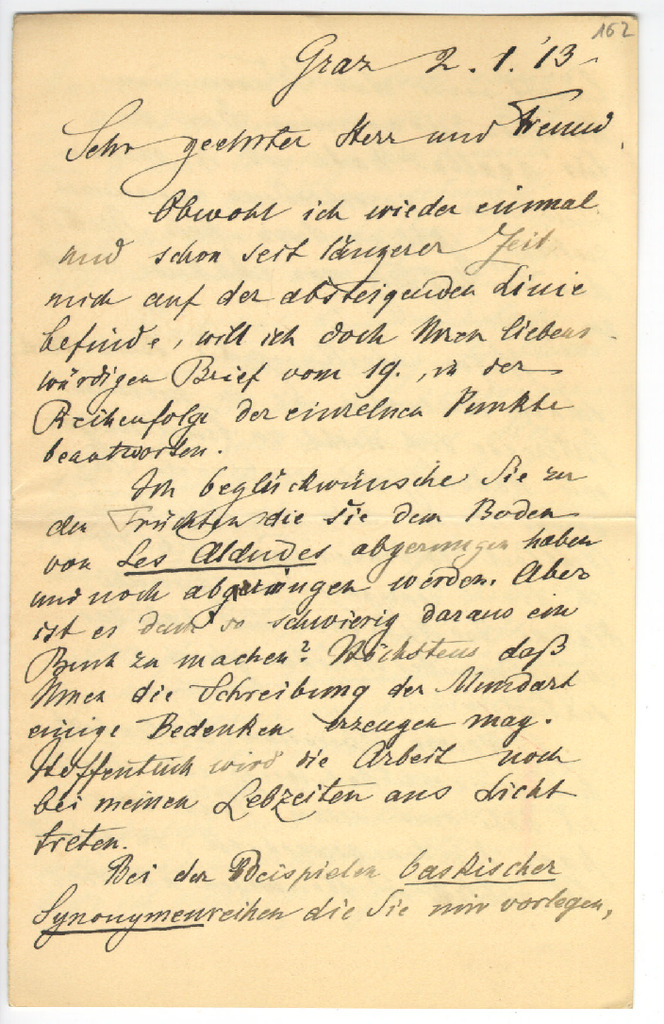 162
Graz 2.1.'13.
Sehr geehrter Herr und Freund,
Obwohl ich wieder einmal
und schon seit längerer Zeit
mich auf der absteigenden Linie
befinde, will ich doch Ihren liebens-
würdigen Brief vom 19., in der
Reihenfolge der einzelnen Punkte
beantworten.
Ich beglückwünsche Sie zu
den Früchten die Sie dem Boden
von Les Aldudes abgerungen haben
und noch abgerungen werden. Aber
ist es denn so schwierig daraus ein
Buch zu machen? Höchstens daß
Ihnen die Schreibung der Mundart
einige Bedenken erzeugen mag.
Hoffentlich wird die Arbeit noch
bei meinen Lebzeiten ans Licht
treten.
Bei den Beispielen baskischer
Synonymenreihen die Sie mir vorlegen,